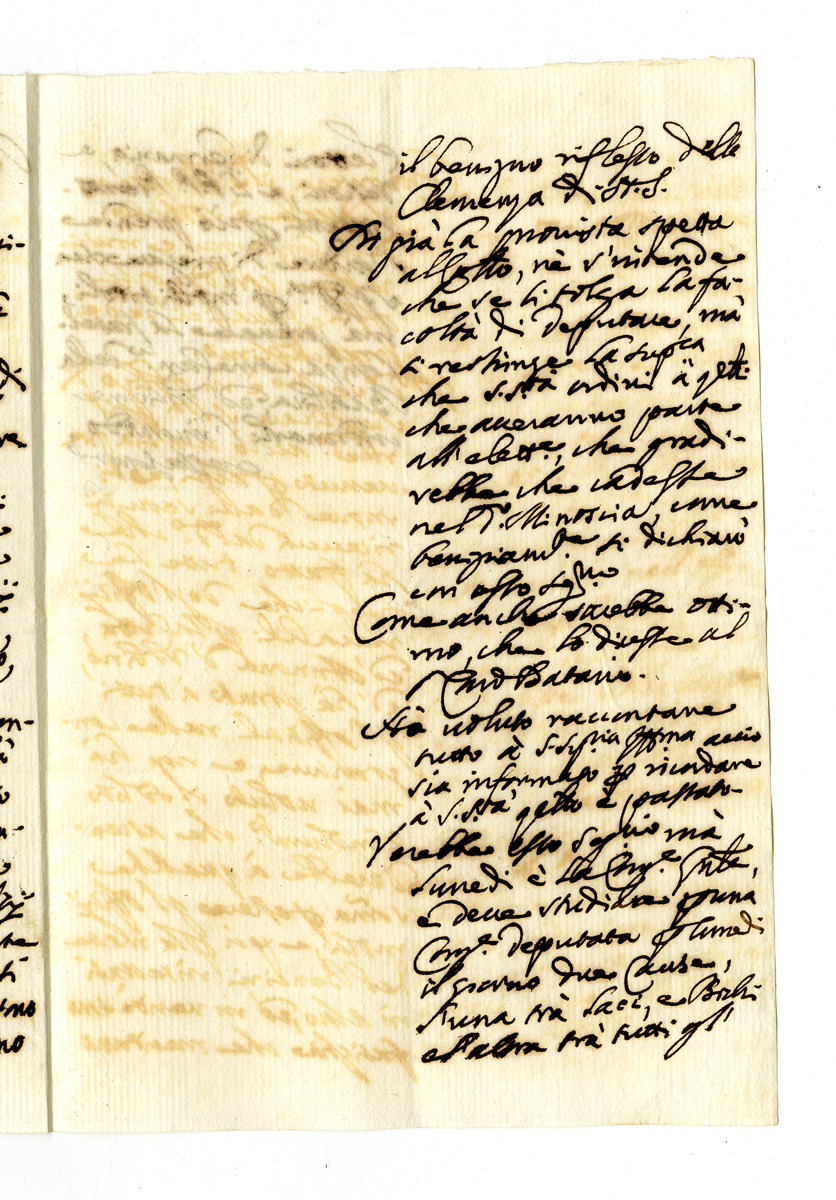 il benigno riflesso della
Clemenza di N. S.
Di già la provista spetta
all'Ill.o, nè s'intende
che se li tolga la fa-
coltà di deputare, mà
si restringe la supca
che S. Stà ordini à qlli
che averanno parte
all'elett.e, che gradi-
rebbe che cadesse
nel P. Minoscia, come
benignam.te si dichiarò
con esso Sig.no
Come anche sarebbe otti-
mo, che lo dicesse al
Card Datario.
Hà voluto raccontare
tutto à S. Sigria Illma acciò
sia informato p ricordare
à S. Stà qllo è passato.
Verebbe esso mà
Lunedi è la Cong.e Gnle,
e deve studiare p una
Cong.e deputata p Lunedi
il giorno due Cause,
l'una trà Laci, e
e l'altra trà tutti gl'